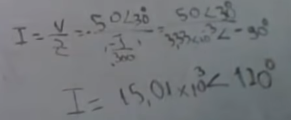 I = V/Z = 50∠30° / (-J/300) = 50∠30° / 3,33×10⁻³∠-90°
I = 15,01×10³∠120°